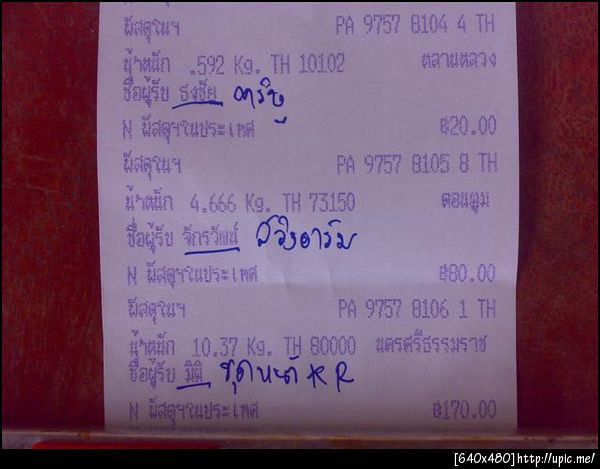 พัสดุในฯ PA 9757 8104 4 TH
น้ำหนัก .592 Kg. TH 10102 ตลาดหลวง
ชื่อผู้รับ ธงชัย คาริษุ
N พัสดุฯในประเทศ ฿20.00
พัสดุในฯ PA 9757 8105 8 TH
น้ำหนัก 4.666 Kg. TH 73150 ดอนตูม
ชื่อผู้รับ จักรวัฒน์ สวิงอาร์ม
N พัสดุฯในประเทศ ฿80.00
พัสดุในฯ PA 9757 8106 1 TH
น้ำหนัก 10.37 Kg. TH 80000 นครศรีธรรมราช
ชื่อผู้รับ มิติ ชุดหน้า KR
N พัสดุฯในประเทศ ฿170.00
[640x480]http://upic.me/